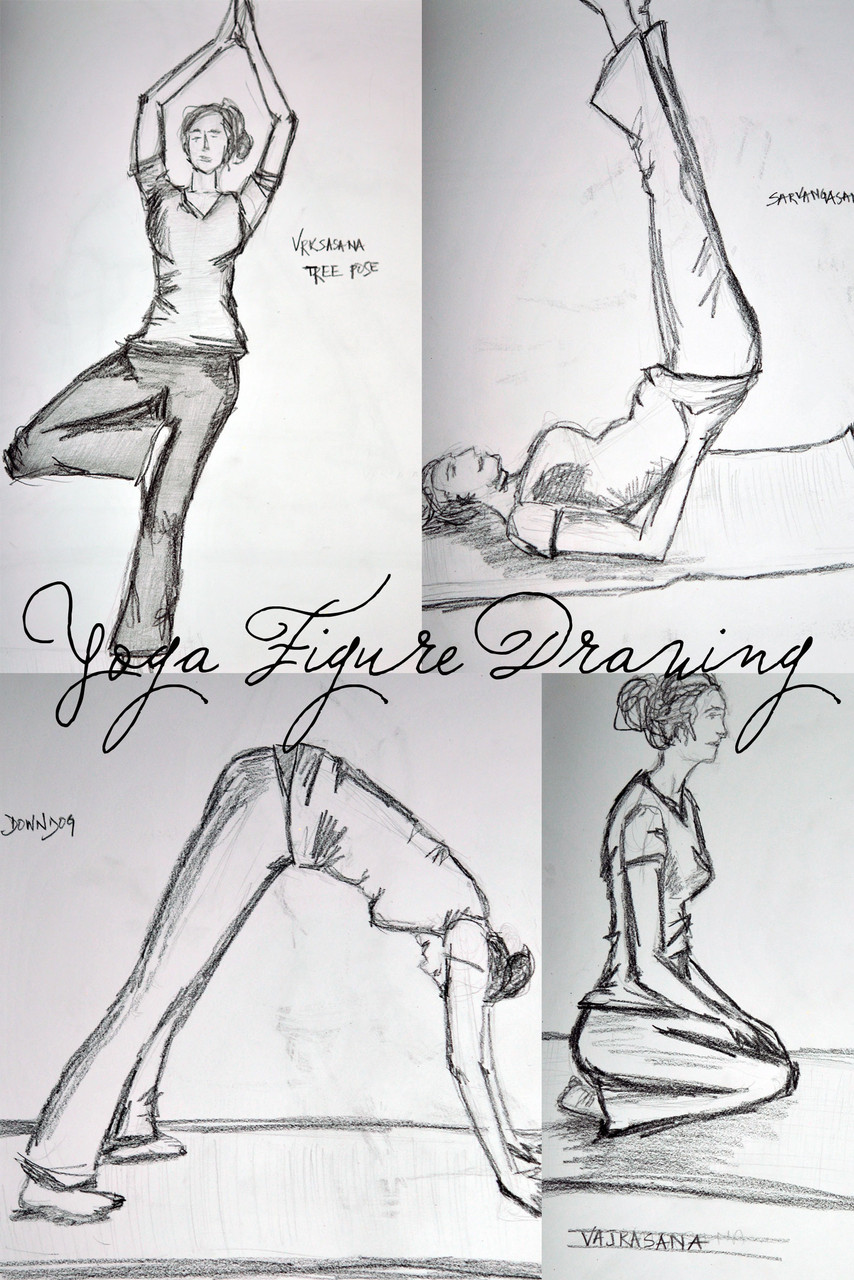 VRKSASANA
TREE POSE
SARVANGASAN
Yoga Figure Drawing
DOWNDOG
VAJRASANA